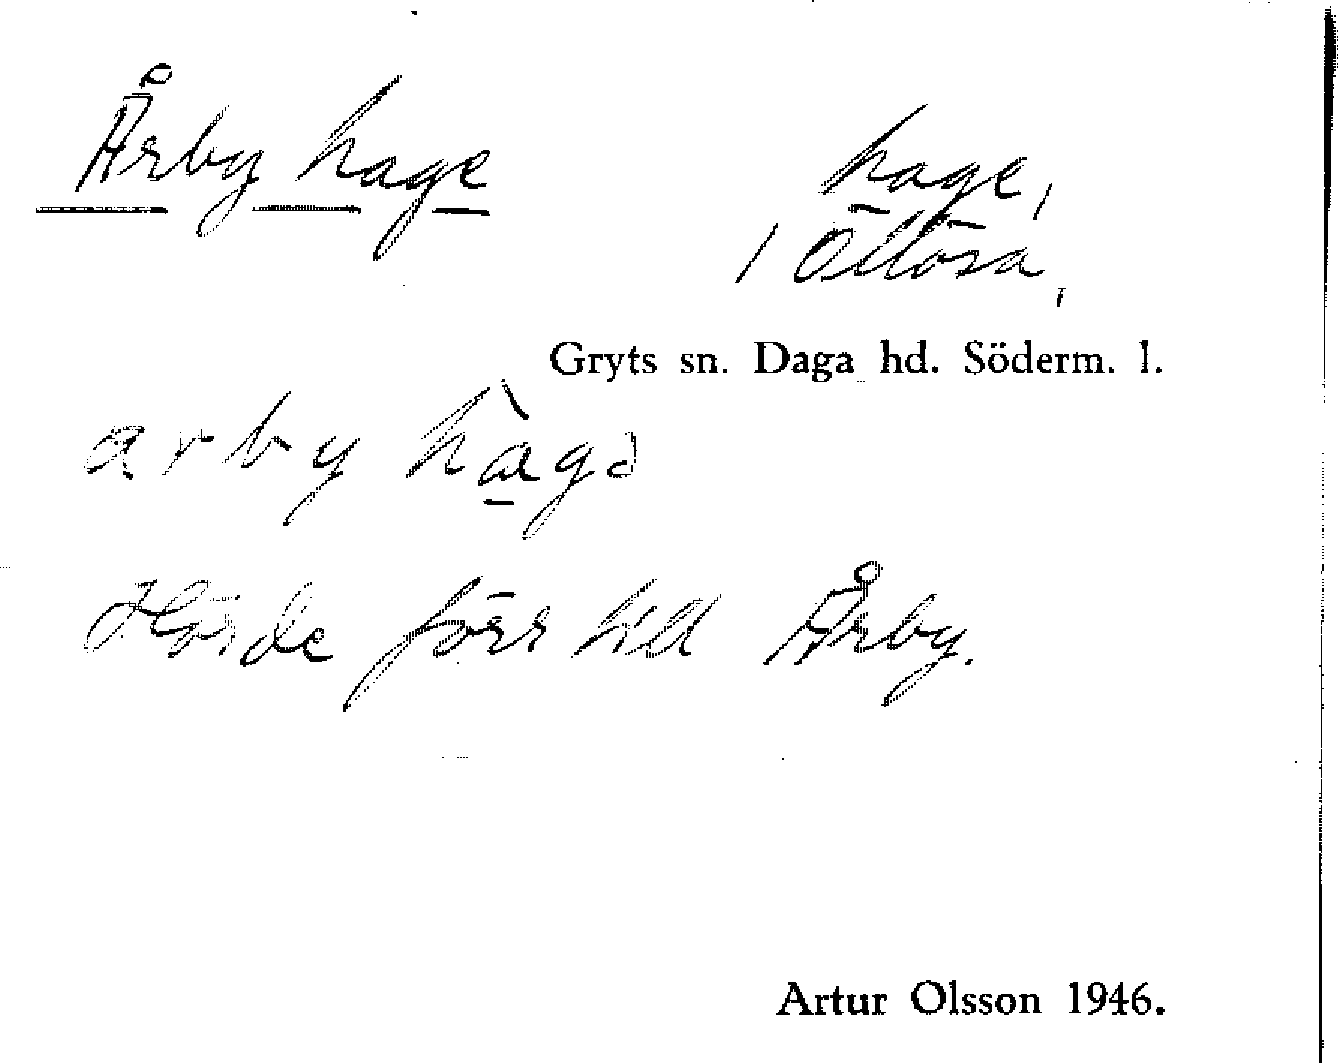 Årby hage
hage,
/ Ottösa,
Gryts sn. Daga hd. Söderm. l.
arby hàgə
Hörde förr till Årby.
Artur Olsson 1946.